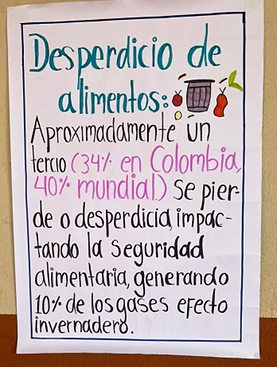 Desperdicio de
alimentos:
Aproximadamente un
tercio (34% en Colombia,
40% mundial) Se pier-
de o desperdicia, impac-
tando la seguridad
alimentaria, generando
10% de los gases efecto
invernadero.